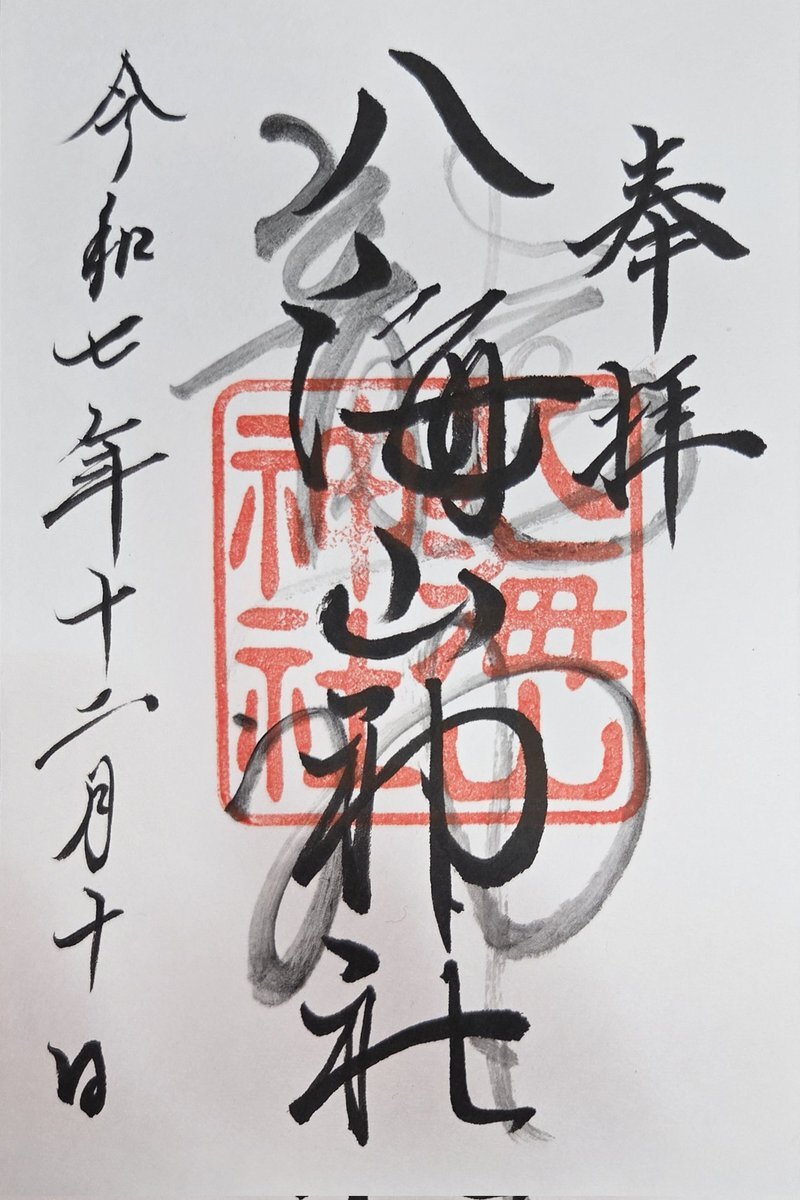 奉拝
八海山神社
八海山神社
令和七年十二月十日